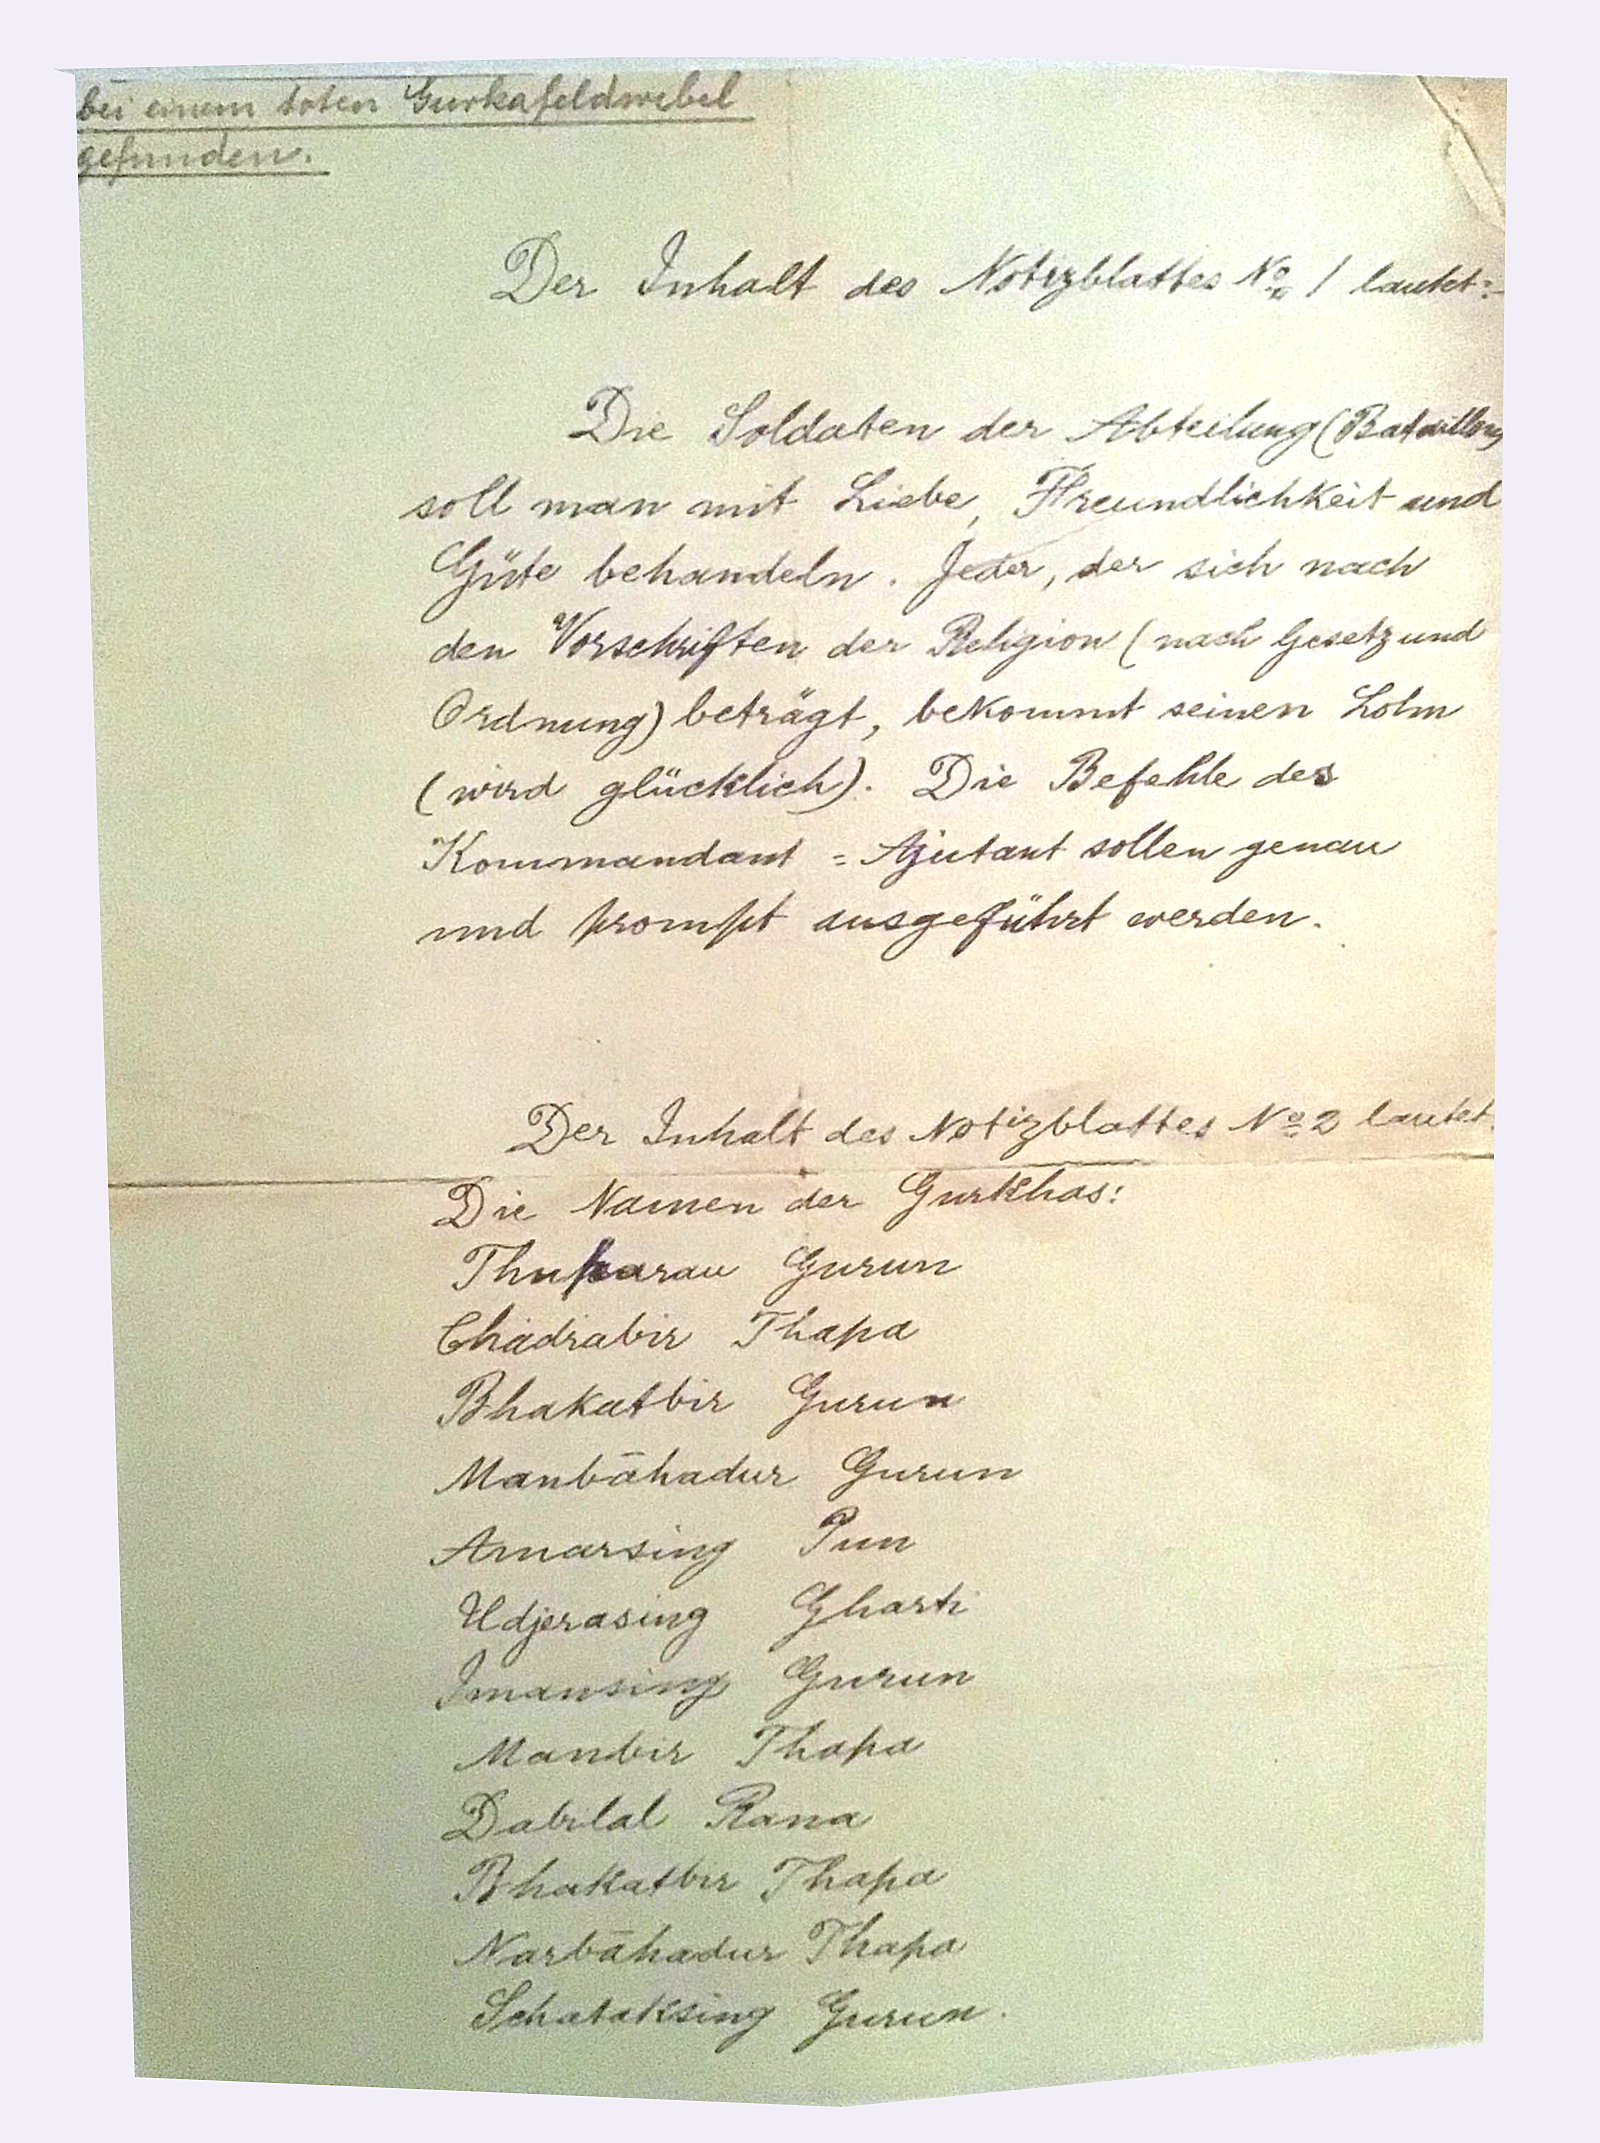 bei einem toten Gurkafeldwebel
gefunden.
Der Inhalt des Notizblattes No. 1 lautet:-
Die Soldaten der Abteilung (Bataillon)
soll man mit Liebe, Freundlichkeit und
Güte behandeln. Jeder, der sich nach
den Vorschriften der Religion (nach Gesetz und
Ordnung) beträgt, bekommt seinen Lohn
(wird glücklich). Die Befehle des
Kommandant = Ajutant sollen genau
und prompt ausgeführt werden.
Der Inhalt des Notizblattes No 2 lautet.
Die Namen der Gurkhas:
Gurun
Chadrabir Thapa
Bhakatbir Gurun
Manbāhadur Gurun
Amarsing Pun
Udjerasing Gharti
Imansing Gurun
Manbir Thapa
Dabilal Rana
Bhakatbir Thapa
Narbāhadur Thapa
Schataksing Gurun.